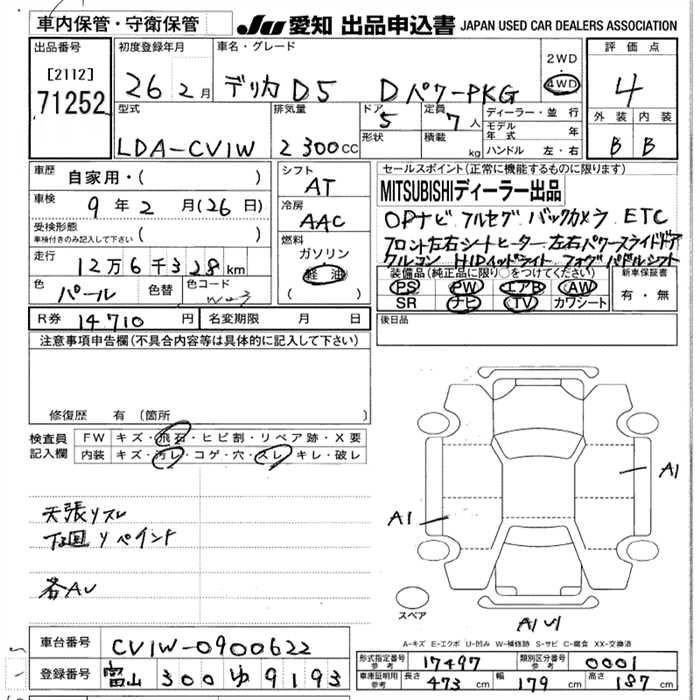 車内保管・守衛保管
JU 愛知 出品申込書 JAPAN USED CAR DEALERS ASSOCIATION
出品番号
[2112]
71252
初度登録年月
26 2月
車名・グレード
デリカ D5 Dパワー PKG
2WD
4WD
評価点
4
外装 内装
B B
型式
LDA-CV1W
排気量
2300cc
ドア
5
形状
定員
7人
積載
kg
ディーラー・並行
モデル年式 年
ハンドル 左・右
車歴
自家用・( )
車検
9年2月(26日)
受検形態
車検付きのみ記入して下さい ( )
走行
12万6千328km
色
パール
色替
色コード
シフト
AT
冷房
AAC
燃料
ガソリン
軽油
( )
セールスポイント(正常に機能するものに限ります)
MITSUBISHIディーラー出品
OPナビ フルセグ バックカメラ ETC
フロント左右シートヒーター 左右パワースライドドア
クルコン HIDヘッドライト フォグ パドルシフト
装備品(純正品に限り○をつけてください)
PS PW エアB AW
SR ナビ TV カワシート
新車保証書
有・無
R券 14710円
名変期限 月 日
後日品
注意事項申告欄(不具合内容等は具体的に記入して下さい)
修復歴 有(箇所
検査員記入欄
FW キズ・飛石・ヒビ割・リペア跡・X要
内装 キズ・汚レ・コゲ・穴・スレ・キレ・破レ
天張リスレ
下回リペイント
各AU
A1
A1
スペア
A1 U1
A-キズ E-エクボ U-凹み W-補修跡 S-サビ C-腐食 XX-交換済
車台番号
CV1W-0900622
登録番号
富山 300 ゆ 9193
形式指定番号 参考 17497
類別区分番号 参考 0001
車庫証明用 参考 長さ 473cm 幅 179cm 高さ 187cm